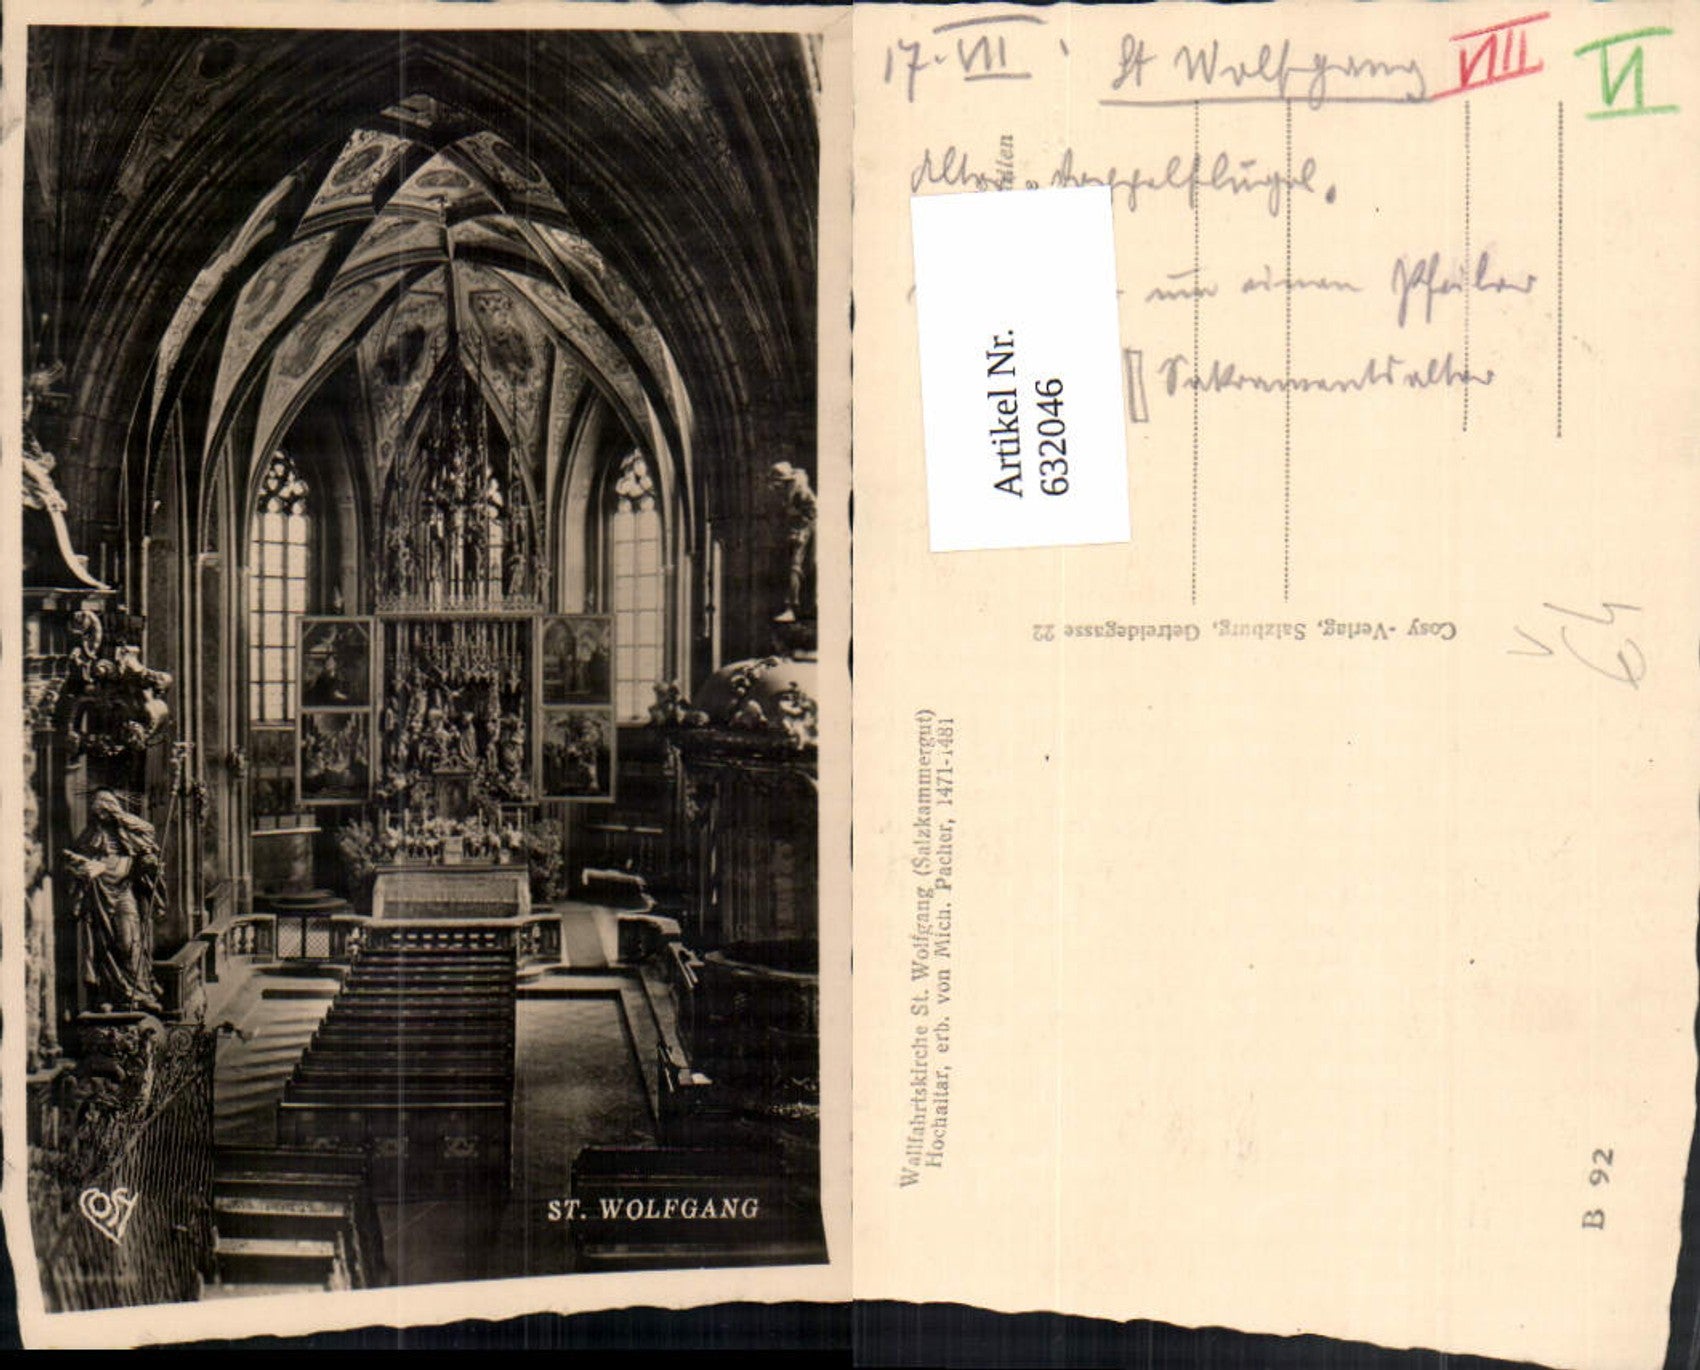 COSY
ST. WOLFGANG
17. VII
St Wolfgang
VIII
VI
Doppelflügel.
um einen Pfeiler
Sakramentsaltar
Artikel Nr.
632046
Cosy-Verlag, Salzburg, Getreidegasse 22
V
64
Wallfahrtskirche St. Wolfgang (Salzkammergut)
Hochaltar, erb. von Mich. Pacher, 1471-1481
B 92